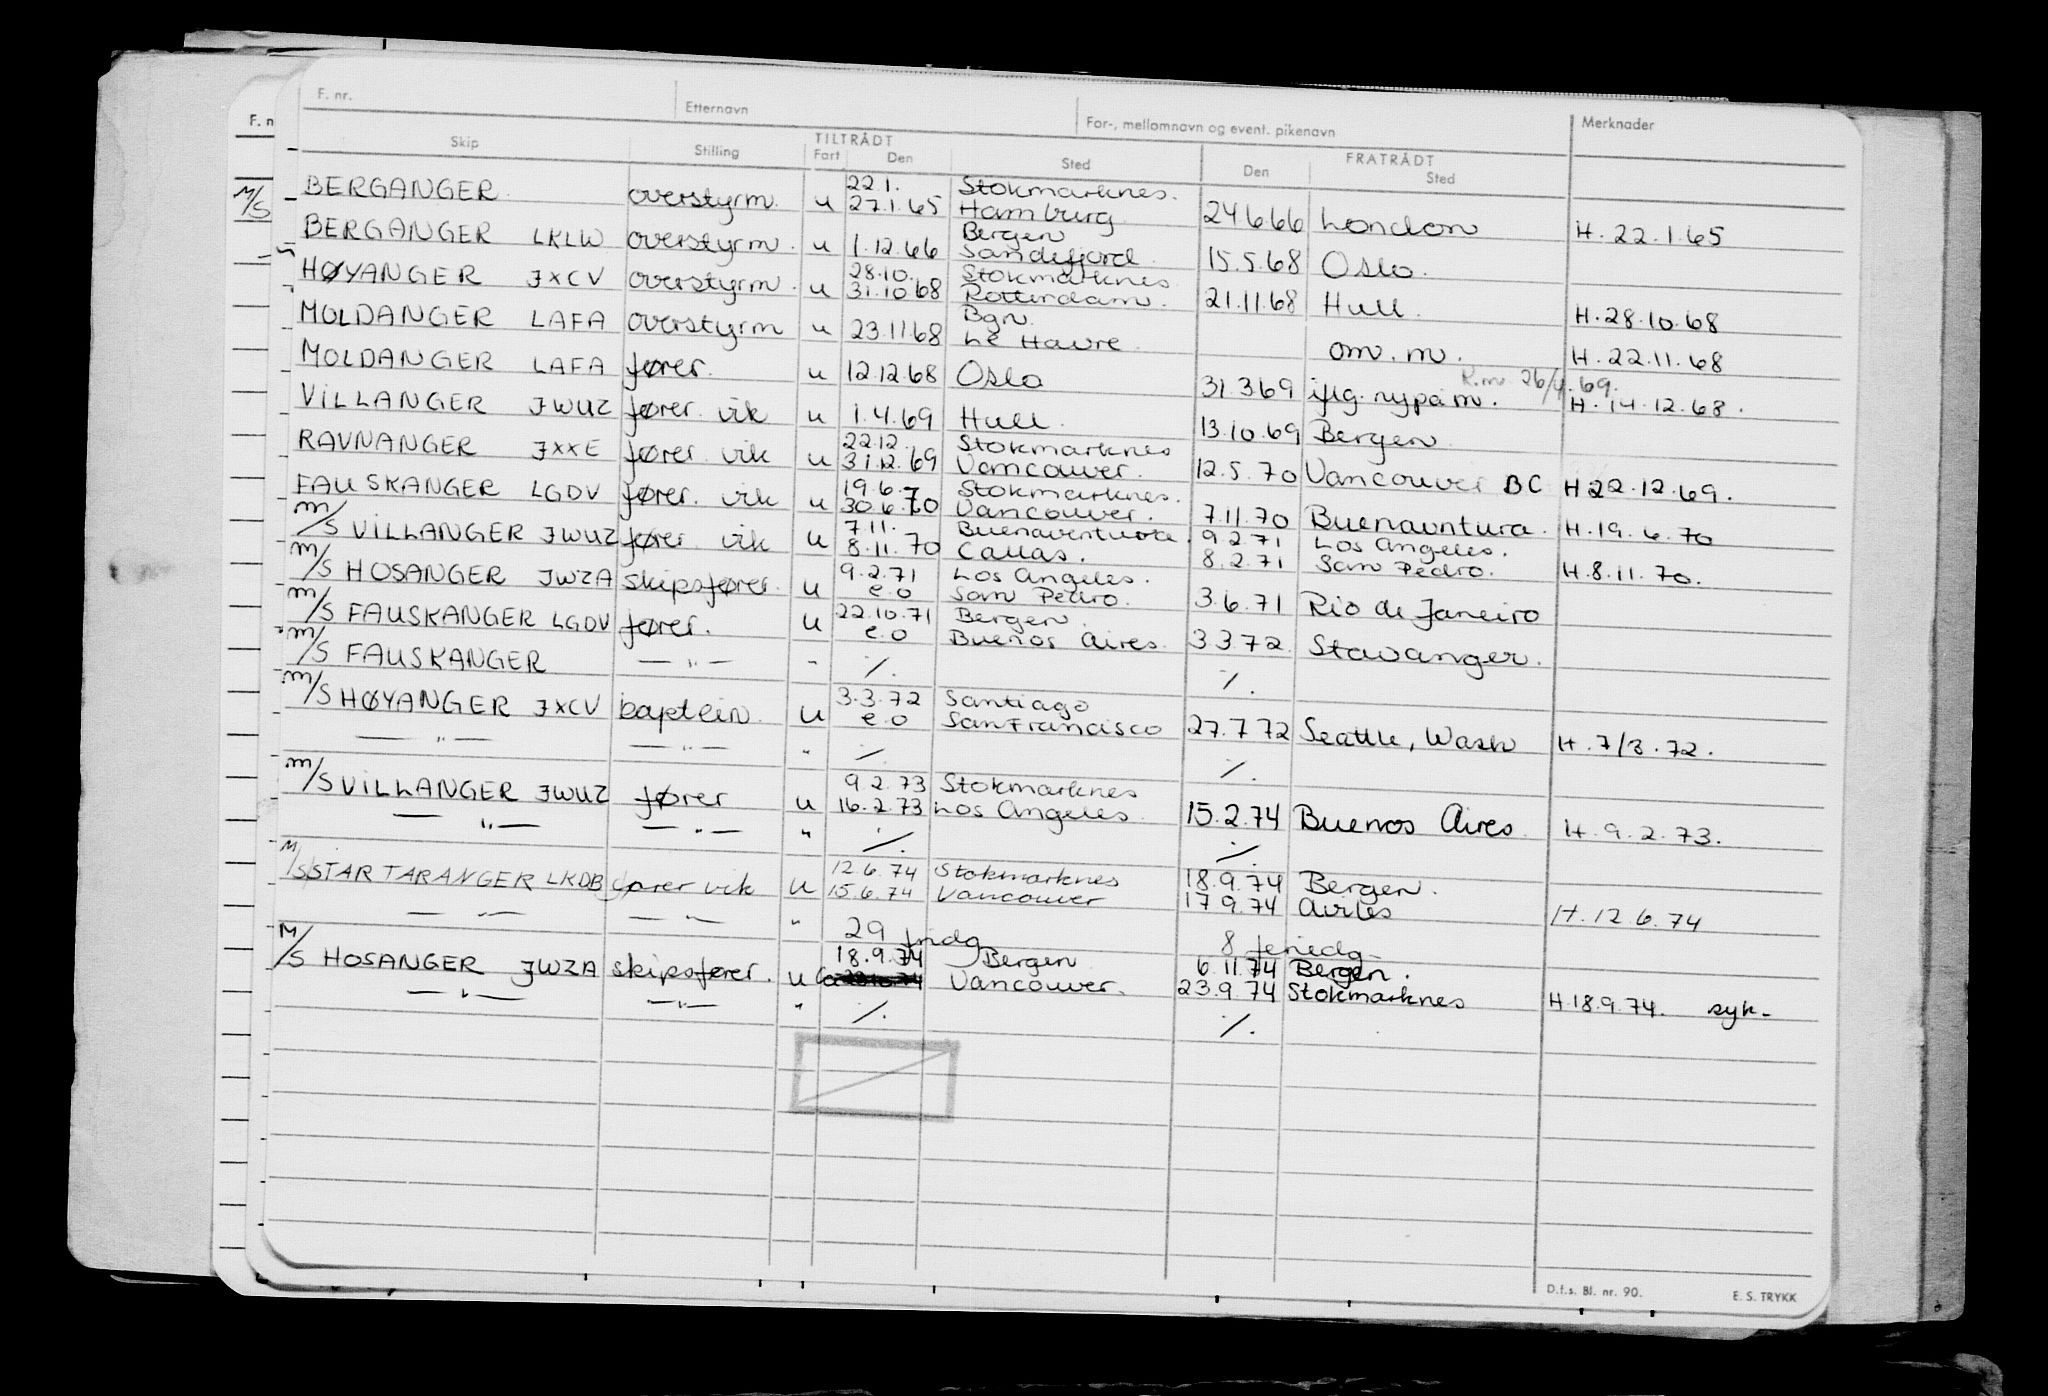 F. nr.
Etternavn
For-, mellomnavn og event. pikenavn
Merknader
F. n
Skip
Stilling
TILTRÅDT
Fart
Den
Sted
FRATRÅDT
Den
Sted
M/S
BERGANGER. overstyrm. u 22.1. Stokmarknes.
27.1.65 Hamburg 24.6.66 London H. 22.1.65
BERGANGER LKLW overstyrm. u 1.12.66 Bergen
Sandefjord. 15.5.68 Oslo.
HØYANGER JXCV overstyrm. u 28.10. Stokmarknes
31.10.68 Rotterdam. 21.11.68 Hull. H.28.10.68
MOLDANGER LAFA overstyrm u 23.11.68 Bgn.
Le Havre. om. m. H.22.11.68
MOLDANGER LAFA fører. u 12.12.68 Oslo 31.3.69 iflg. nypåm. 26/4.69. H.14.12.68.
VILLANGER JWUZ fører vik u 1.4.69 Hull. 13.10.69 Bergen
RAVNANGER JXXE fører vik u 22.12. Stokmarknes
31.12.69 Vancouver. 12.5.70 Vancouver BC H22.12.69.
FAUSKANGER LGDV fører. vik u 19.6. Stokmarknes.
30.6.70 Vancouver. 7.11.70 Buenavntura. H.19.6.70
M/S VILLANGER JWUZ fører vik u 7.11. Buenaventura. 9.2.71 Los Angeles.
8.11.70 Callas. 8.2.71 San Pedro. H.8.11.70.
M/S HOSANGER JWZA skipsfører. u 9.2.71 Los Angeles.
e.o San Pedro. 3.6.71 Rio de Janeiro
M/S FAUSKANGER LGDV fører. u 22.10.71 Bergen.
e.o Buenos Aires. 3.3.72. Stavanger.
M/S FAUSKANGER — " — " /. /.
M/S HØYANGER JXCV kaptein. u 3.3.72 Santiago
e.o San Francisco 27.7.72 Seattle, Wash H.7/3.72.
— " — — " — " /. /.
M/S VILLANGER JWUZ fører u 9.2.73 Stokmarknes
16.2.73 Los Angeles. 15.2.74 Buenos Aires. H.9.2.73.
— " — — " — " /. /.
M/S STAR TARANGER LKDB fører vik u 12.6.74 Stokmarknes 18.9.74 Bergen.
15.6.74 Vancouver 17.9.74 Aviles H.12.6.74
— " — — " — " 29 fridg 8 feriedg.
M/S HOSANGER JWZA skipsfører. u 18.9.74 Bergen 6.11.74 Bergen.
Vancouver. 23.9.74 Stokmarknes H.18.9.74. syk-
— " — — " — " /. /.
D.f.s. Bl. nr. 90.
E. S. TRYKK